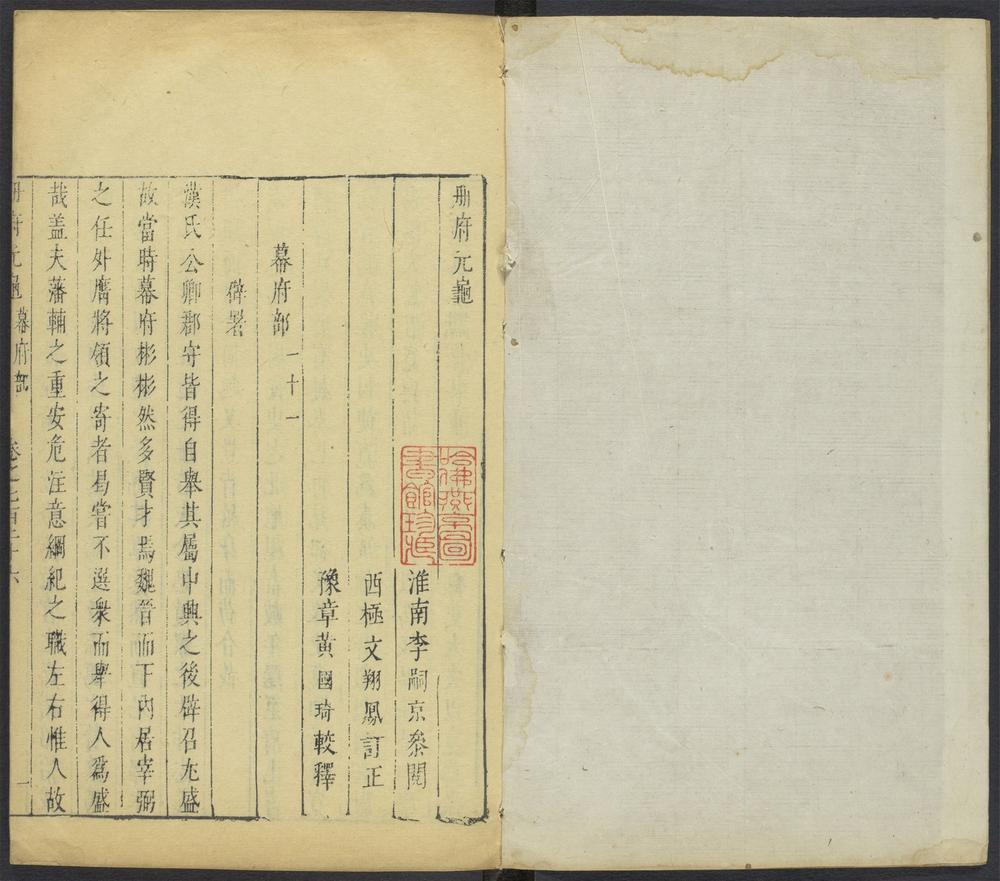 册府元龜
淮南李嗣京叅閱
西極文翔鳳訂正
豫章黃國琦較釋
幕府部 一十一
辟署
漢氏公卿郡守皆得自舉其屬中興之後辟召尤盛
故當時幕府彬彬然多賢才焉魏晉而下內居宰弼
之任外膺將領之寄者曷嘗不選衆而舉得人爲盛
哉盖夫藩輔之重安危注意綱紀之職左右惟人故
册府元龜 幕府部 卷之七百二十六 一
哈佛燕京圖書館珍藏